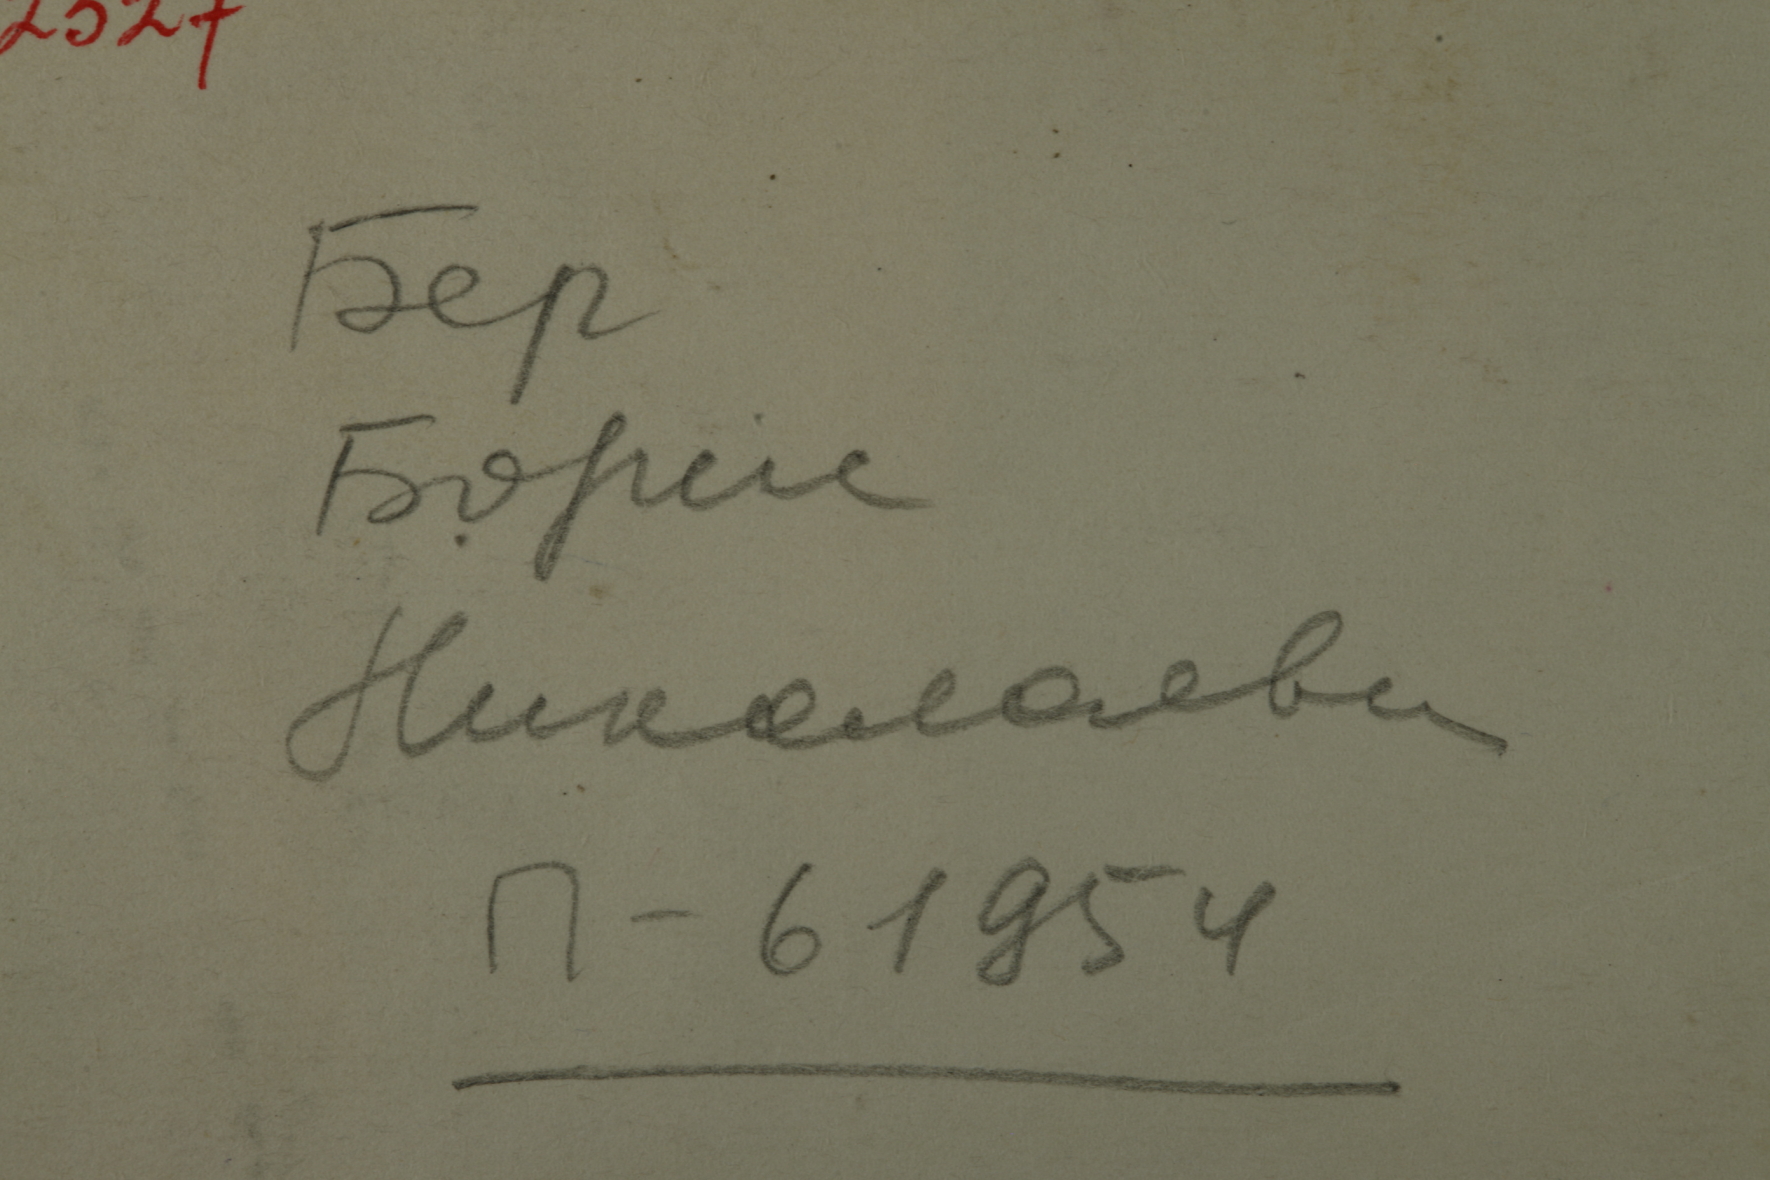 2527
Бер
Борис
Николаеви
П-61954